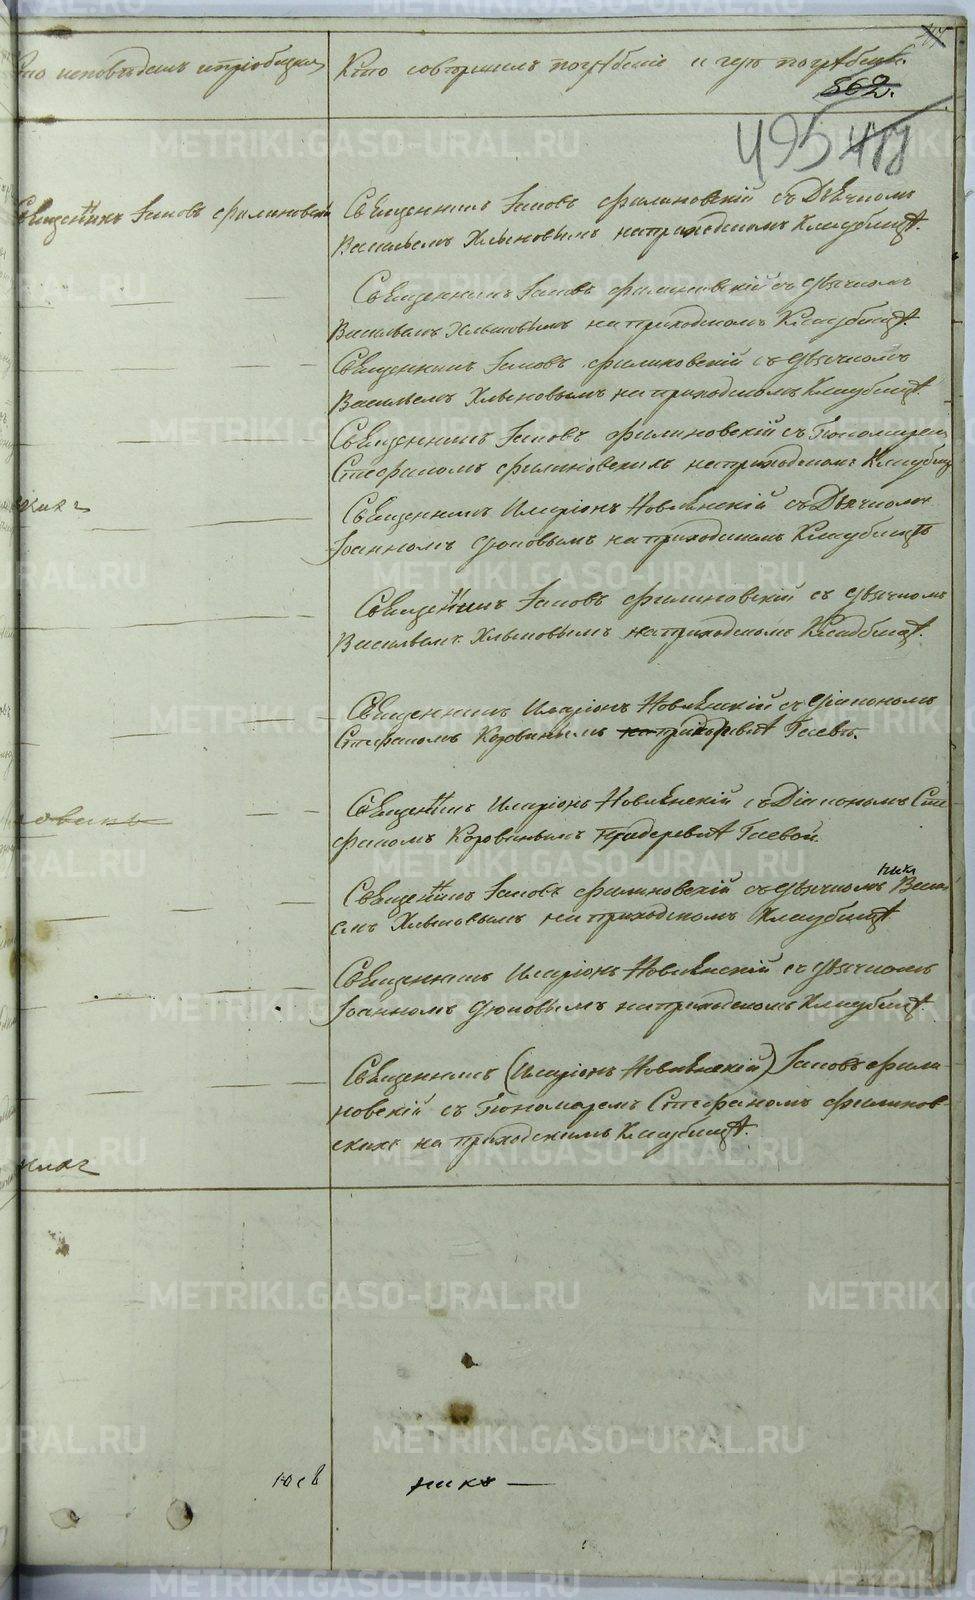 Кто исповѣдалъ и пріобщилъ
Кто совершилъ погребеніе и гдѣ погребены.
562.
495
Священникъ Іаковъ Филиновскій
Священникъ Іаковъ Филиновскій съ Дьячкомъ
Васильемъ Хлыновымъ на приходскомъ Кладбищѣ.
Священникъ Іаковъ Филиновскій съ дьячкомъ
Васильемъ Хлыновымъ на приходскомъ Кладбищѣ.
Священникъ Іаковъ Филиновскій съ дьячкомъ
Васильемъ Хлыновымъ на приходскомъ Кладбищѣ.
Священникъ Іаковъ Филиновскій съ Пономарем
Стефаномъ Филиновскихъ на приходскомъ Кладбищ
Священникъ Иларіонъ Новлѣнскій съ Дьячкомъ
Іоанномъ Дюповымъ на приходскомъ Кладбищѣ
Священникъ Іаковъ Филиновскій съ дьячкомъ
Васильемъ Хлыновымъ на приходскомъ Кладбищѣ.
Священникъ Иларіонъ Новлѣнскій съ діакономъ
Стефаномъ Коровинымъ на при деревнѣ Гаевѣ.
Священникъ Иларіонъ Новлѣнскій съ Діакономъ Сте
фаномъ Коровинымъ при деревнѣ Гаевой.
Священникъ Іаковъ Филиновскій съ дьячкомъ Васи
емъ Хлыновымъ на приходскомъ Кладбищѣ
Священникъ Иларіонъ Новлѣнскій съ дьячкомъ
Іоанномъ Дюповымъ на приходскомъ Кладбищѣ.
Священникъ (Иларіонъ Новлѣнскій) Іаковъ Фили-
новскій съ Пономаремъ Стефаномъ Филинов-
скихъ на приходскимъ Кладбищѣ.
METRIKI.GASO-URAL.RU